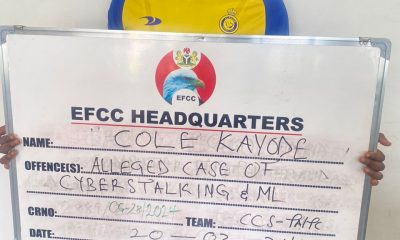 EFCC
EFCC HEADQUARTERS
NAME: COLE KAYODE
OFFENCE(S): ALLEGED CASE OF
CYBERSTALKING & ML
CRNO: TEAM: CCS-
DATE: 20 - 03 -